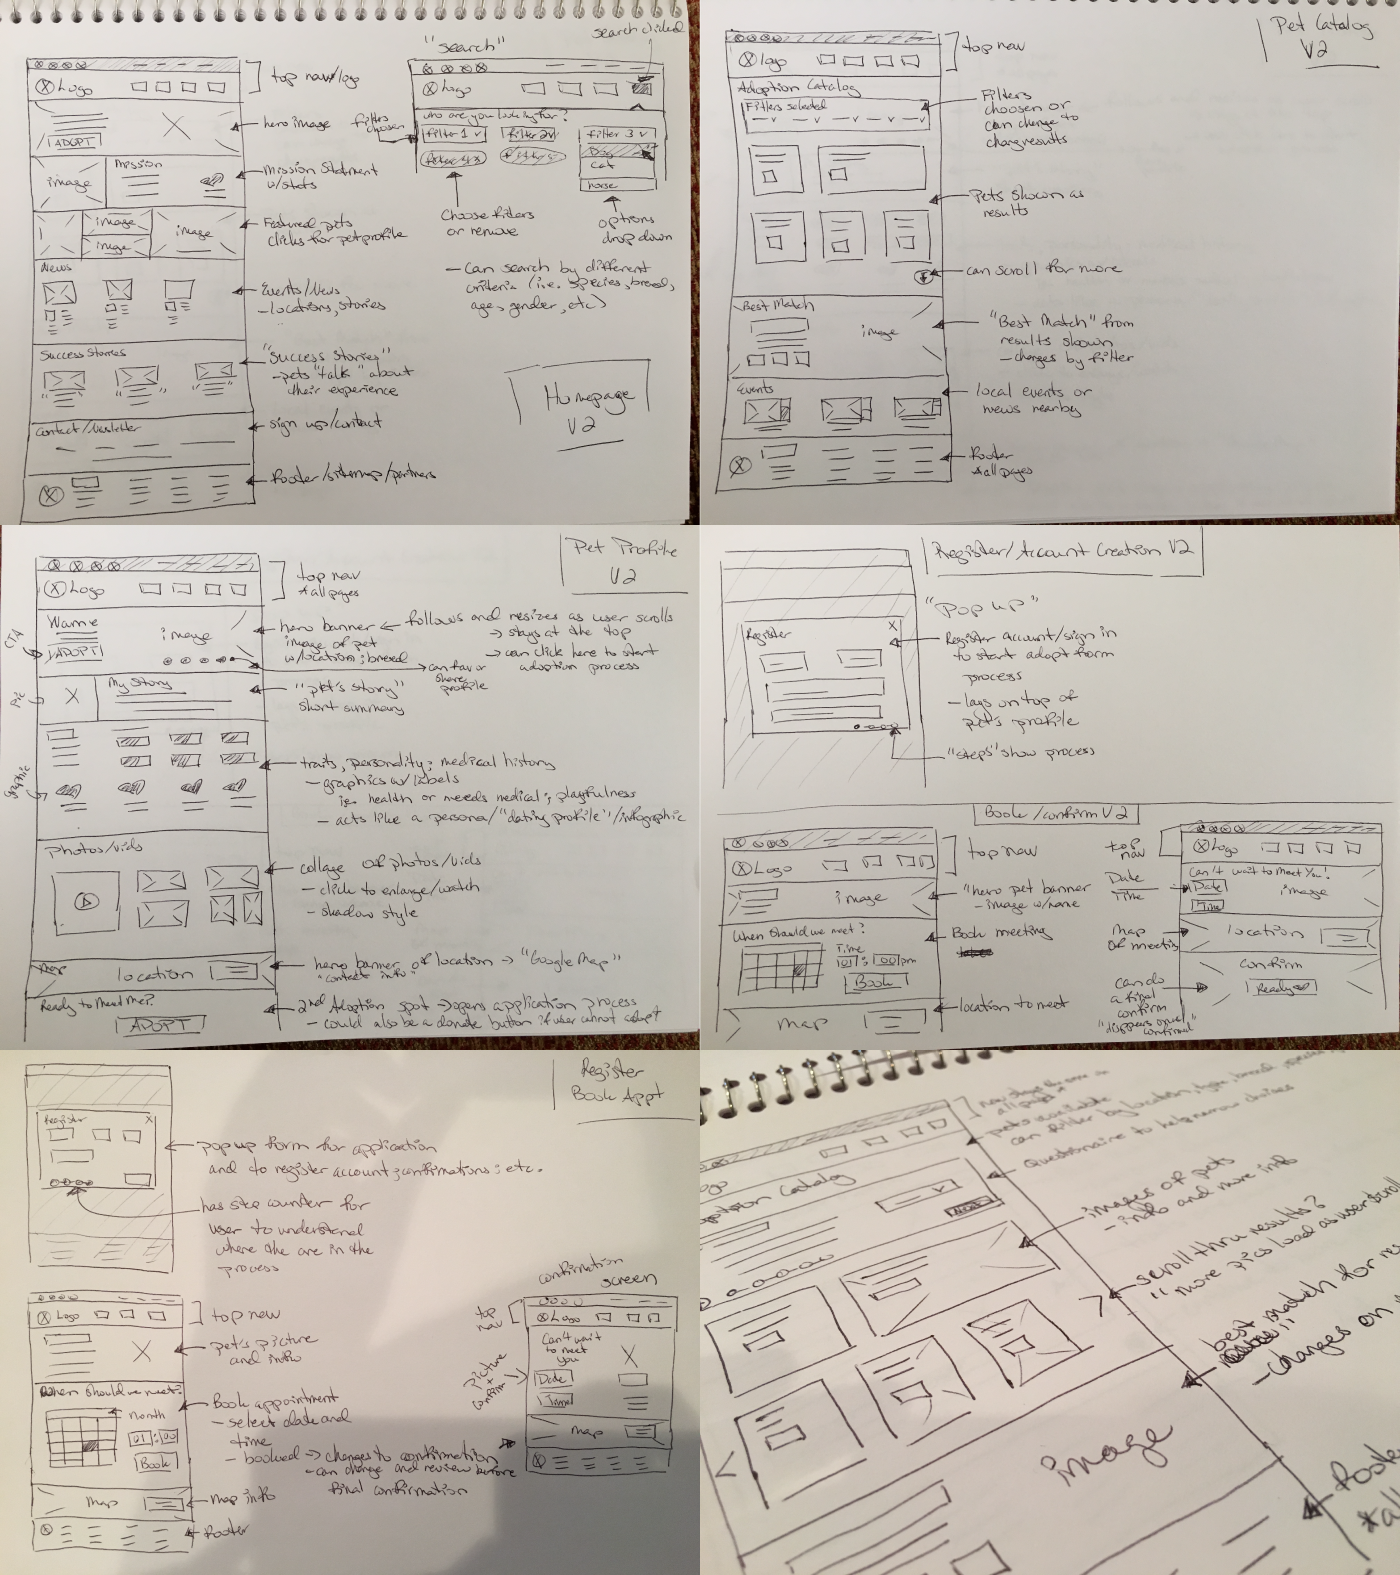 "search"
search clicked
Logo
top nav/logo
Logo
who are you looking for?
filters
choosen
filter 1 v
filter 2 v
filter 3 v
Dog
Cat
horse
ADOPT
hero image
Mission
image
Mission Statment
w/stats
Choose filters
or remove
options
drop down
image
image
image
Featured pets
clicks for pet profile
- Can search by different
criteria (i.e. species, breed,
age, gender, etc)
News
Events/News
- locations, stories
Success Stories
"Success Stories"
- pets "talk" about
their experience
Homepage
V2
Contact/Newsletter
sign up/contact
footer/sitemap/partners
Pet Catalog
V2
logo
top nav
Adoption Catalog
Filters selected
Filters
choosen or
can change to
change results
Pets shown as
results
can scroll for more
Best Match
image
"Best Match" from
results shown
- changes by filter
Events
local events or
news nearby
footer
*all pages
Pet Profile
V2
Logo
top nav
*all pages
CTA
Name
image
ADOPT
hero banner
image of pet
w/location; breed
follows and resizes as user scrolls
→ stays at the top
→ can click here to start
adoption process
can favor
share
profile
Pic
X
My Story
"pet's story"
short summary
graphic
traits, personality; medical history
- graphics w/labels
ie. health or needs medical; playfulness
- acts like a persona/"dating profile"/infographic
Photos/vids
collage of photos/vids
- click to enlarge/watch
- shadow style
Map
location
hero banner of location → "Google Map"
"contact info"
Ready to Meet Me?
ADOPT
2nd Adoption spot → opens application process
- could also be a donate button if user cannot adopt
Register/Account Creation V2
"Pop up"
Register
X
Register account/sign in
to start adopt form
process
- lays on top of
pet's profile
"steps" show process
Book/confirm V2
Logo
top nav
image
"hero pet banner
- image w/name
When should we meet?
Time
01 : 00 pm
Book
Book meeting
map
location to meet
top
nav
Logo
Date
Time
Can't wait to Meet You!
Date
Time
image
map
of meeting
location
confirm
Ready
can do
a final
confirm
Register
Book Appt
Register
X
pop up form for application
and to register account; confirmations; etc.
has step counter for
user to understand
where the are in the
process
Logo
top nav
X
pet's picture
and info
When should we meet?
month
01 : 00
Book
Book appointment
- select date and
time
- booked → changes to confirmation
- can change and review before
final confirmation
map
map info
footer
confirmation
screen
top
nav
Logo
Can't wait
to meet
you
X
picture
+
confirm
Date
Time
map
all pages
pets available
can filter by location, type, breed,
Questionaire to help narrow choices
Adoption Catalog
images of pets
- info and more info
scroll thru results?
"more pics load as user scroll
best match for
- changes on
image
foote
*all